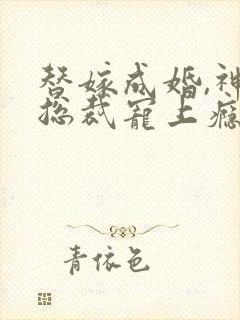 替嫁成婚,神
总裁宠上瘾
青依色